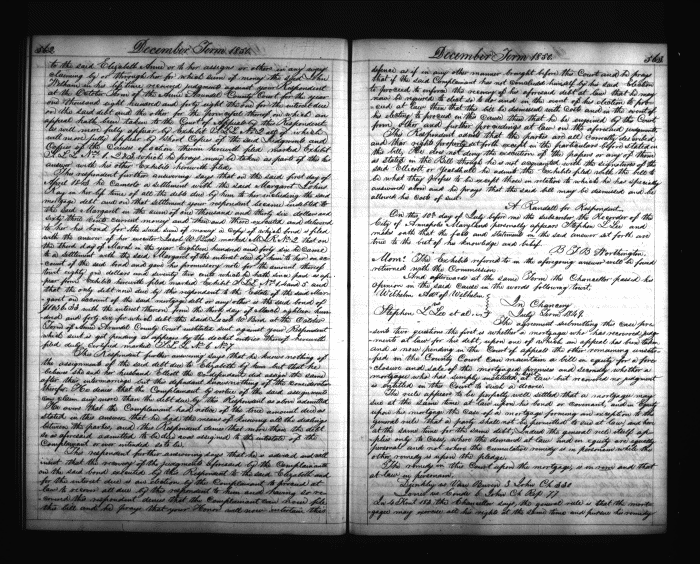 562 December Term 1850.
to the said Elizabeth Ann or to her assigns or other in any way
claiming by or through her for which sum of money the said John
Wilhelm in his life time received judgments against your Respondent
at the October Term of the Anne Arundel County Court in the year
one thousand eight hundred and forty eight the one for the interest due
on the said debt and the other for the principal thereof in which an
appeal hath been taken to the Court of Appeals by this Respondent
as will more fully appear by Exhibit S.L.L. No 2 all of which
will more fully appear by Short Copies of the said Judgments and
Copies of the Causes of action therein herewith filed marked Exhibits
S.L.L. No 1-2 & 3 which he prays may be taken as parts of this his
answer with his other Exhibits herewith filed.
This respondent further answering says that on the said first day of
April 1841 he came to a settlement with the said Margaret Lohns
Pray in her life time of all the debt due from him to her including the said
mortgage debt and on that settlement your respondent became indebted to
the said Margaret in the sum of one thousand and thirty six dollars and
sixty three cents current money and then and there executed and delivered
to her his bond for the said sum of money a Copy of which bond is filed
with the answer of
the third day of March in the year Eighteen hundred and forty six he came
to a settlement with the said Margaret of the interest due by him to her on ac-
count of the said bond and gave his promissory note for the amount thereof
and eighty six dollars and seventy two cents which he hath since paid as ap-
pear from Exhibit herewith filed marked Exhibit S.L.L. No 4 and 5 and
that the only debt now due by this respondent to the Estate of the said Mar-
garet on account of the said mortgage debt or any other is the said bond of
$1036.63 with the interest thereon from the third day of March eighteen hun-
dred and forty six for which debt the said Jacob W. Bird at the October
Term of Anne Arundel County Court instituted suit against your Respondent
which suit is yet pending as appears by the docket entries thereof herewith
filed duly certified marked S.L.L. No 6 & 7
This Respondent further answering says that he knows nothing of
the assignment of the said debt due to Elizabeth by him but that he
believes the said her husband the said the Complainant did assign the same
after their intermarriage but this defendant knows nothing of the consideration
therefor. He denies that the Complainant by virtue of the said assignment
can claim any more than the debt due by this Respondent as above admitted
He avers that the Complainant had notice of the true amount due as
stated in this answer that he had the means of knowing all the dealings
between the parties, and this Respondent denies that more than the debt
so as aforesaid admitted to be due was assigned to the intestate of the
Complainant or ever intended so to be.
This respondent further answering says that he is advised and will
insist that the recovery of the judgments aforesaid by the Complainants
on the said bond executed by this Respondent to the said Elizabeth and
for the interest due is an election by the Complainant to proceed at
law to recover all dues by this respondent to him and having so re-
covered this respondent denies that the Complainant can have filed
this bill and he prays that your Honor will now entertain this
December Term 1850. 563
defence as if in any other manner brought before the Court and he prays
that if the said Complainant has not concluded himself by his said election
to proceed to inforce the recovery of his aforesaid debt at law that he now
may be required to elect so to do and in the event of his election to pro-
ceed at law then that this bill be dismissed with costs and in the event of
his electing to proceed in this cause then that he be enjoined by the Court
from other and further proceedings at law on the aforesaid judgments
This Respondent admits that the parties are all correctly described
and their rights properly set forth except in the particulars before stated in
the bill, He does not deny the execution of the papers or any of them
as stated in the Bill though he is not acquainted with the signatures of the
said Clerot or Yeakhall he admits the Exhibits filed with the bill to
be what they profess to be except those in relation to which he has specially
answered above and he prays that the said bill may be dismissed and he
allowed his costs of suit.
A Randall for Respondent
On this 10th day of July before me the subscriber, the Recorder of the
City of Annapolis Maryland personally appears Stephen L Lee and
makes oath that the facts and statements in the above answer set forth are
true to the best of his knowledge and belief.
B. T. B Worthington
Mem: The Exhibits referred to in the aforegoing answer will be found
returned with the Commission.
And afterwards at the same Term the Chancellor passed his
opinion in the said Cause in the words following, to wit:
Wilhelm Adr of Wilhelm
vs
Stephen L Lee et al
In Chancery
July Term 1849.
The argument submitting this case pre-
sents two questions the first is whether a mortgagee who has recovered judg-
ments at law for his debt, upon one of which an appeal has been taken
and is now pending in the Court of Appeals the other remaining unsatis-
fied in the County Court can maintain a bill in equity for a fore-
closure and sale of the mortgaged premises and secondly whether a
mortgagee who has simply instituted at law but recovered no judgment
is entitled in this Court to such a decree.
The rule appears to be perfectly well settled that a mortgagee may
sue at the same time at law upon his bond or covenant and in Equity
upon his mortgage the Case of a mortgage forming an exception to the
general rule that a party shall not be permitted to sue at law and here
at the same time for the same debt; indeed the general rule itself ap-
plies only to Cases, where the demand at law and in equity are equally
personal and not where the cumulative remedy is in personam while the
other remedy is upon the pledge.
The remedy in this Court upon the mortgage, is in rem and that
at law in personam
Dunkley vs Van Buren 3 John Ch 330
Jones vs Conde 6. John Ch Rep. 77
In 4 Kent 183 the Chancellor says, the general rule is that the mort-
gagee may exercise all his rights at the same time and pursue his remedy